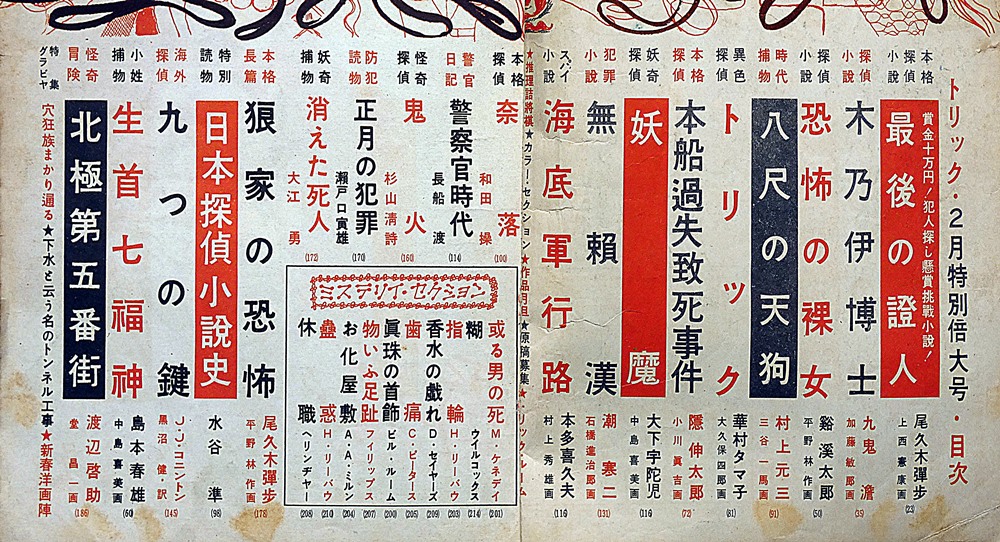 トリック・2月特別倍大号・目次
本格探偵小説
賞金十万円!犯人探し懸賞挑戦小説!
最後の證人
尾久木彈歩
上西憲康画
(23)
探偵小説
木乃伊博士
九鬼澹
加藤敏郎画
(35)
探偵小説
恐怖の裸女
谿溪太郎
平野林作画
(50)
時代捕物
八尺の天狗
村上元三
三谷一馬画
(91)
異色探偵
トリック
華村タマ子
大久保四郎画
(81)
本格探偵
本船過失致死事件
隠伸太郎
小川眞吉画
(72)
妖奇探偵
妖魔
大下宇陀児
中島喜美画
(116)
犯罪小説
無頼漢
潮寒二
石橋進治郎画
(131)
スパイ小説
海底軍行路
本多喜久夫
村上秀雄画
(116)
★推理詰将棋★カラー・セクション★作品月旦★原稿募集★トリックルーム
本格探偵
奈落
和田操
(100)
警官日記
警察官時代
長船渡
(114)
怪奇探偵
鬼火
杉山清詩
(160)
防犯読物
正月の犯罪
瀬戸口寅雄
(170)
妖奇捕物
消えた死人
大江勇
(172)
ミステリイ・セクション
或る男の死
M・ケネデイ
(201)
糊
ウイルコックス
(214)
指輪
H・リーバウ
(203)
香水の戯れ
D・セイヤーズ
(209)
歯痛
C・ピータース
(205)
眞珠の首飾
ビル・ルーム
(200)
物いふ足趾
フィリップス
(207)
お化屋敷
A・A・ミルン
(204)
蠱惑
H・リーバウ
(210)
休職
ヘリンヂヤー
(208)
本格長篇
狼家の恐怖
尾久木彈歩
平野林作画
(178)
特別読物
日本探偵小説史
水谷準
(98)
海外探偵
九つの鍵
J・J・コニントン
黒沼健・訳
(145)
小姓捕物
生首七福神
島本春雄
中島喜美画
(60)
怪奇冒険
北極第五番街
渡辺啓助
堂昌一画
(186)
特集グラビヤ
穴狂族まかり通る★下水と云う名のトンネル工事★新春洋画陣